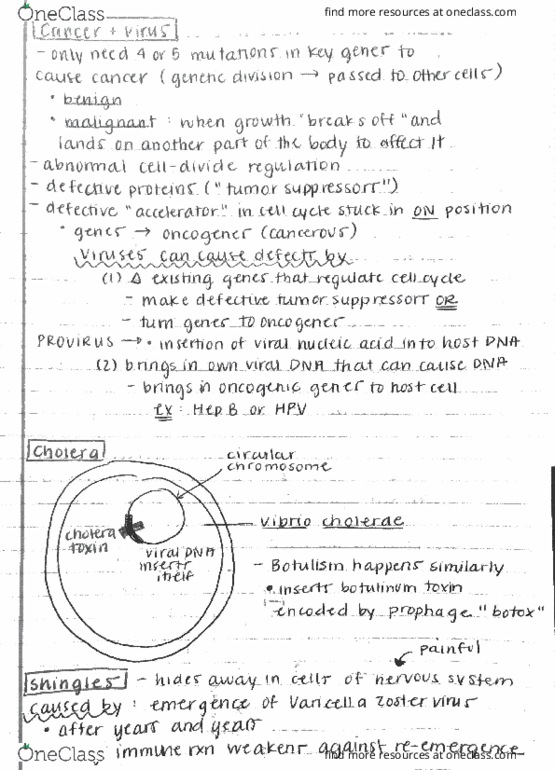 OneClass
find more resources at oneclass.com
Cancer + virus
- only need 4 or 5 mutations in key genes to
cause cancer (genetic division → passed to other cells)
• benign
• malignant : when growth "breaks off" and
lands on another part of the body to affect it
- abnormal cell-divide regulation
- defective proteins ("tumor suppressors")
- defective "accelerator" in cell cycle stuck in ON position
• genes → oncogenes (cancerous)
Viruses can cause defects by
(1) Δ existing genes that regulate cell cycle
- make defective tumor suppressors OR
- turn genes to oncogenes
PROVIRUS → • insertion of viral nucleic acid into host DNA
(2) brings in own viral DNA that can cause DNA
- brings in oncogenic genes to host cell
Ex : Hep B or HPV
Cholera
circular
chromosome
vibrio cholerae
cholera
toxin
viral DNA
inserts
itself
- Botulism happens similarly
• inserts botulinum toxin
encoded by prophage "botox"
painful
Shingles - hides away in cells of nervous system
caused by : emergence of Varicella Zoster virus
• after years and years
immune rxn weakens against re-emergence
OneClass
find more resources at oneclass.com